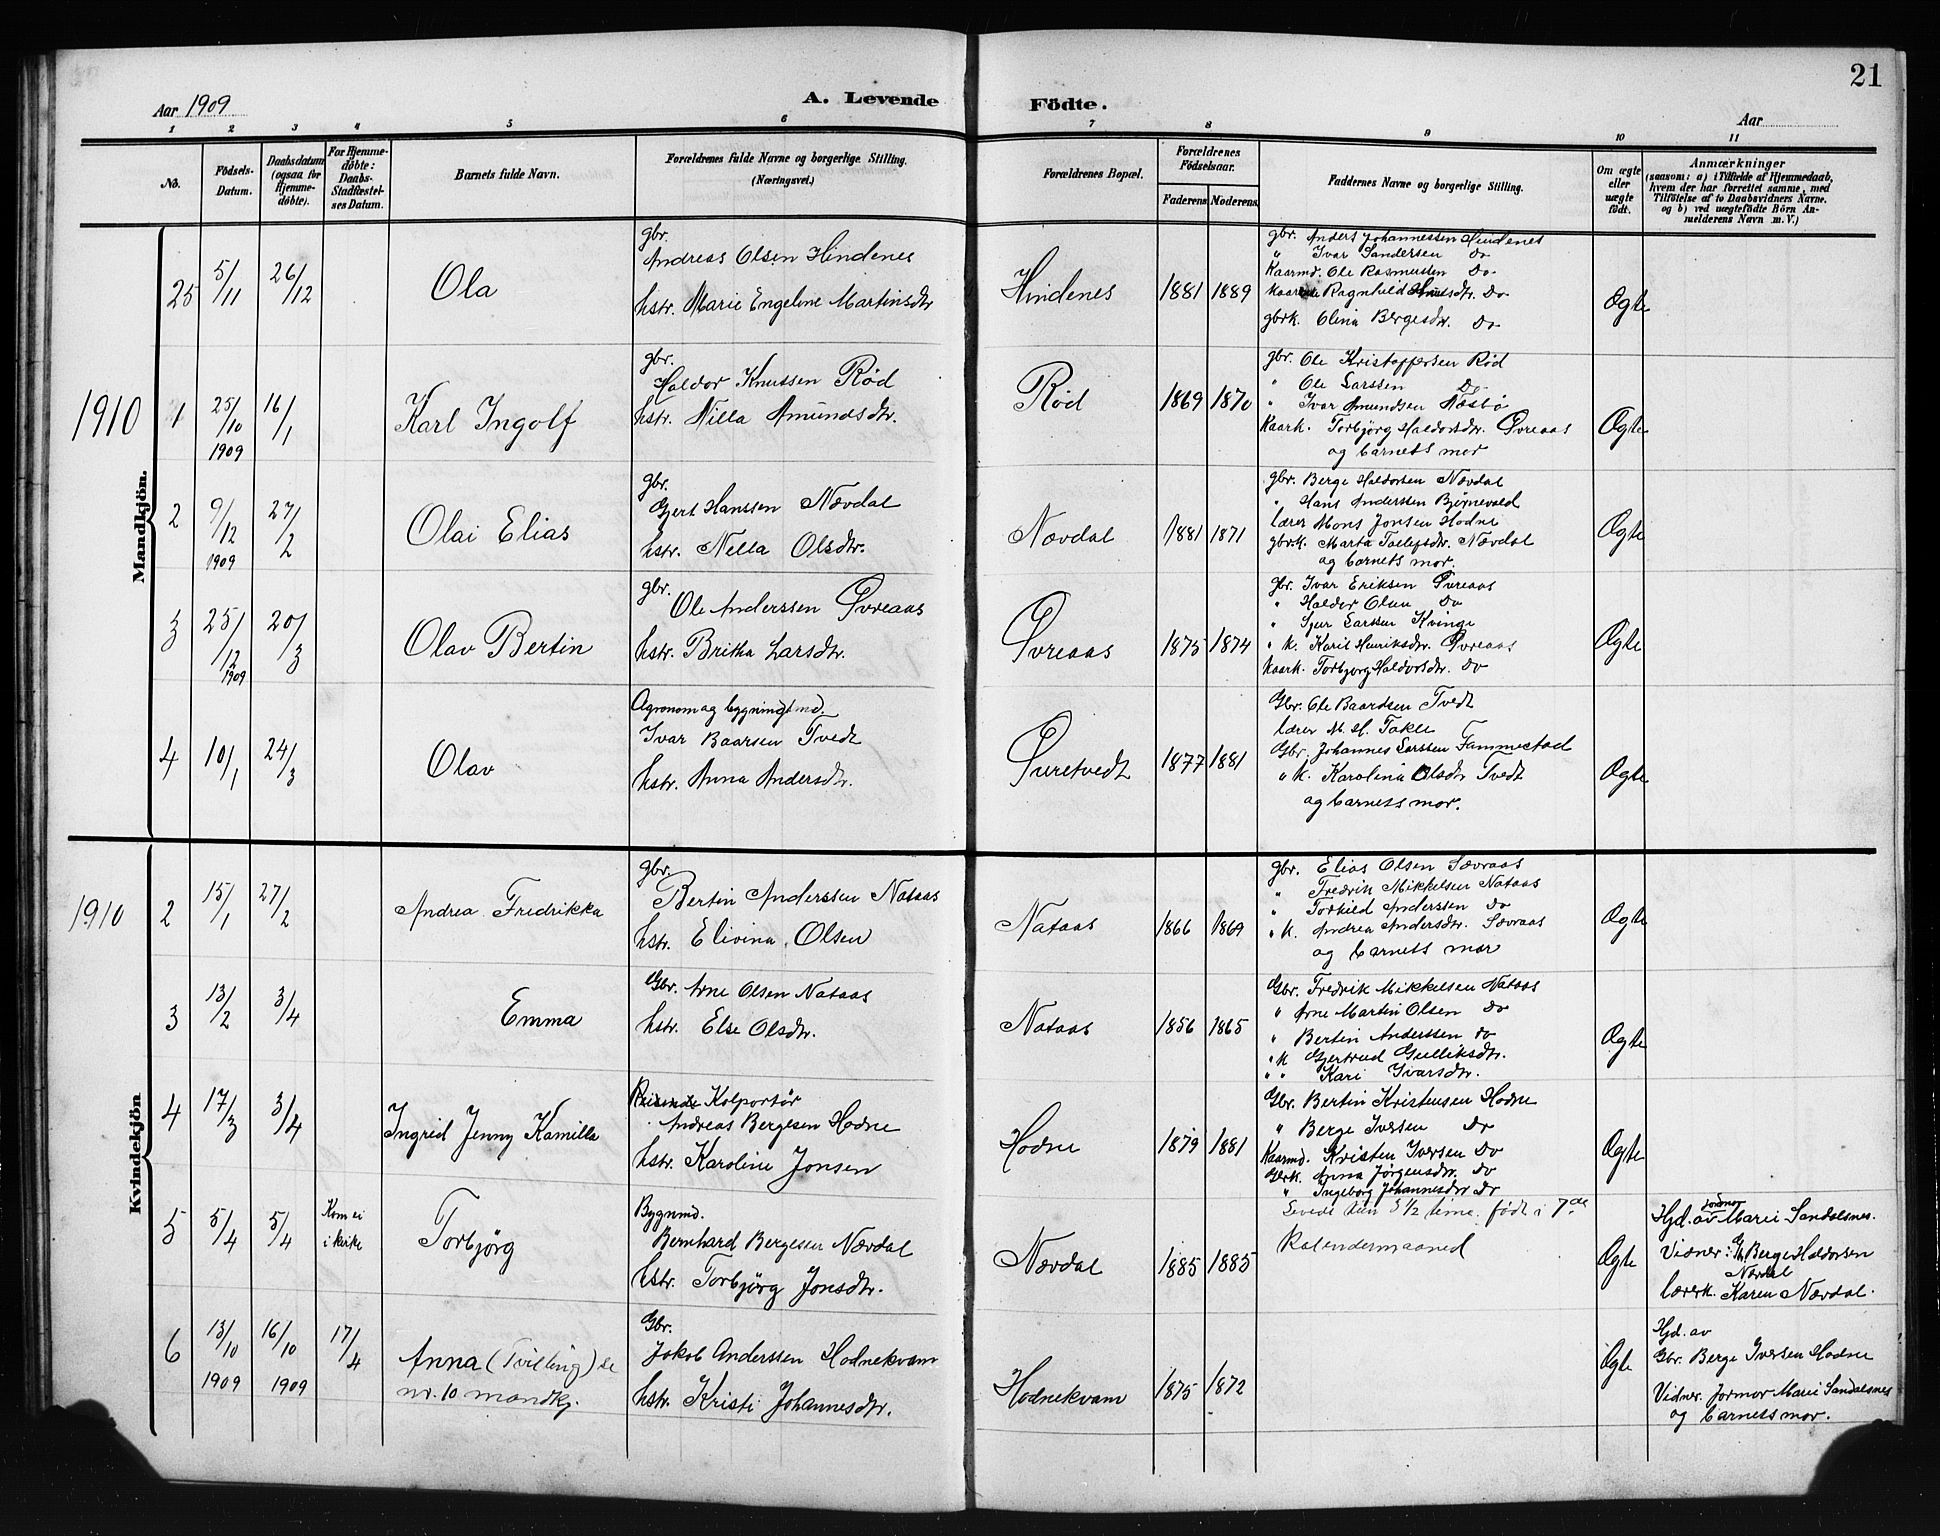 21
Aar 1909
A. Levende
Födte.
Aar
1 2 3 4 5 6 7 8 9 10 11
No.
Födsels-
Datum.
Daabsdatum
(ogsaa for
Hjemme-
döbte).
For Hjemme-
döbte:
Daabs-
Stadfæstel-
ses Datum.
Barnets fulde Navn.
Forældrenes fulde Navne og borgerlige Stilling.
(Næringsvei.)
Forældrenes Bopæl.
Forældrenes
Födselsaar.
Faderens. Moderens.
Faddernes Navne og borgerlige Stilling.
Om ægte
eller
uægte
födt.
Anmærkninger
(saasom: a) i Tilfælde af Hjemmedaab,
hvem der har forrettet samme, med
Tilföielse af to Daabsvidners Navne.
og b) ved uægtefödte Börn An-
melderens Navn m. V.)
Mandkjön.
25 5/11 26/12
Ola
gbr.
Andreas Olsen Hindenes
hstr. Marie Engeline Martinsdtr
Hindenes
1881 1889
gbr. Anders Johannessen Hindenes
" Ivar Sandersen Do
Kaarmd. Ole Rasmussen Do
Kaarenke Ragnhild Knutsdtr. Do
gbrk. Olina Bergesdtr. Do
Ægte
1910
1 25/10 1909 16/1
Karl Ingolf
gbr.
Haldor Knutsen Rød
hstr. Nilla Amundsdtr.
Rød
1869 1870
gbr. Ole Kristoffersen Rød
" Ole Larssen Do
" Ivar Amundsen Næsbø
Kaark. Torbjørg Haldorsdtr. Øvreaas
og barnets mor
Ægte
2 9/12 1909 27/2
Olai Elias
gbr.
Gjert Hanssen Nævdal
hstr. Nilla Olsdtr.
Nævdal
1881 1871
gbr. Berge Haldorsen Nævdal
" Hans Anderssen Bjørnevold
lærer Mons Jonsen Hodne
gbr.k. Marta Tollefsdtr. Nævdal
og barnets mor.
Ægte
3 25/12 1909 20/3
Olav Bertin
gbr.
Ole Anderssen Øvreaas
hstr. Britha Larsdtr.
Øvreaas
1875 1874
gbr. Ivar Eriksen Øvreaas
" Haldor Olsen Do
" Sjur Larssen Kvinge
" k. Karit Henriksdtr. Øvreaas
Kaark. Torbjørg Haldorsdtr. Do
Ægte
4 10/1 24/3
Olav
Agronom og bygningsmd.
Ivar Baarsen Tvedt
hstr. Anna Andersdtr.
Øvretvedt
1877 1881
Gbr. Ole Baardsen Tvedt
lærer M. H. Takle
Gbr. Johannes Larssen Fammestad
" k. Karolina Olsdtr Tvedt
og barnets mor.
Ægte
Kvindekjön
1910
2 15/1 27/2
Andrea Fredrikka
gbr.
Bertin Anderssen Nataas
hstr. Elivina Olsen
Nataas
1866 1869
gbr. Elias Olsen Sævraas
" Fredrik Mikkelsen Nataas
" Torkild Anderssen Do
" k. Andrea Andersdtr. Sævraas
og barnets mor
Ægte
3 13/2 3/4
Emma
Gbr. Arne Olsen Nataas
hstr. Else Olsdtr.
Nataas
1856 1865
Gbr. Fredrik Mikkelsen Nataas
" Arne Martin Olsen Do
" Bertin Anderssen Do
" k Gjertrud Gulliksdtr.
" " Kari Ivarsdtr.
Ægte
4 17/3 3/4
Ingrid Jenny Kamilla
Reisende Kolportør
Andreas Bergesen Hodne
hstr. Karoline Jonsen
Hodne
1879 1881
Gbr. Bertin Kristensen Hodne
" Berge Iversen Do
Kaarmd. Kristen Iversen Do
Gbrk. Anna Jørgensdtr. Do
" Ingeborg Johannesdtr Do
Ægte
5 5/4 5/4
Kom ei
i kirke
Torbjørg
Bygnmd.
Bernhard Bergesen Nævdal
hstr. Torbjørg Jonsdtr.
Nævdal
1885 1885
Levede kun 5 1/2 time. født i 7de
Kalendermaaned
Ægte
Hjd. av jordmor Marie Sandalsnes.
Vidner: Gbr Berge Haldorsen
Nævdal
lærerk. Karen Nævdal.
6 13/10 1909 16/10 1909 17/4
Anna (Tvilling) se
nr. 10 mandkj.
Gbr.
Jakob Anderssen Hodnekvam
hstr. Kristi Johannesdtr.
Hodnekvam
1875 1872
Ægte
Hjd. av
Gbr. Berge Iversen Hodne
Vidner. Jormor Marie Sandalsnes
og barnets mor.